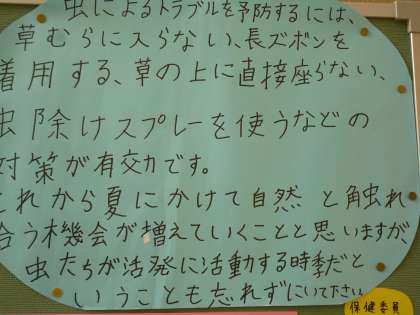 虫によるトラブルを予防するには、
草むらに入らない、長ズボンを
着用する、草の上に直接座らない、
虫除けスプレーを使うなどの
対策が有効です。
これから夏にかけて自然と触れ
合う機会が増えていくことと思いますが、
虫たちが活発に活動する時季だと
いうことも忘れずにいて下さい
保健委員